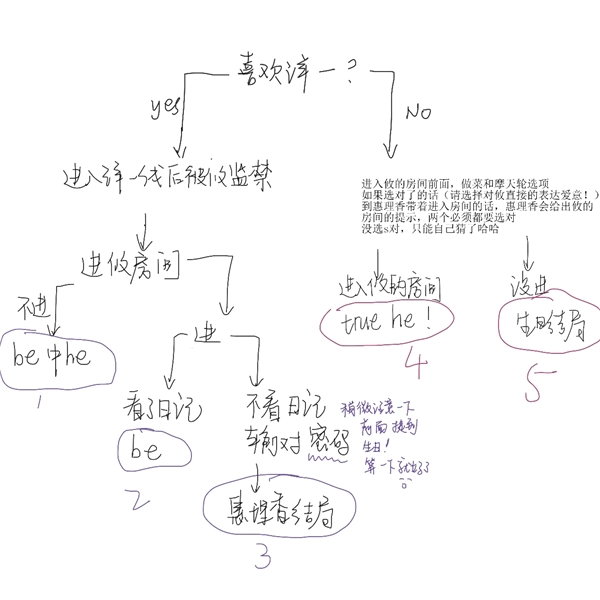 喜欢淳一?
yes
NO
进入淳一线后被攸监禁
进入攸的房间前面，做菜和摩天轮选项
如果选对了的话（请选择对攸直接的表达爱意！）
到惠理香带着进入房间的话，惠理香会给出攸的
房间的提示，两个必须都要选对
没选s对，只能自己猜了哈哈
进攸房间
不进
进
be 中he
1
进入攸的房间
true he！
4
没进
生日结局
5
看了日记
be
2
不看日记
输对 密码
稍微注意一下
前面提到
生日！
算一下就好了
惠理香结局
3